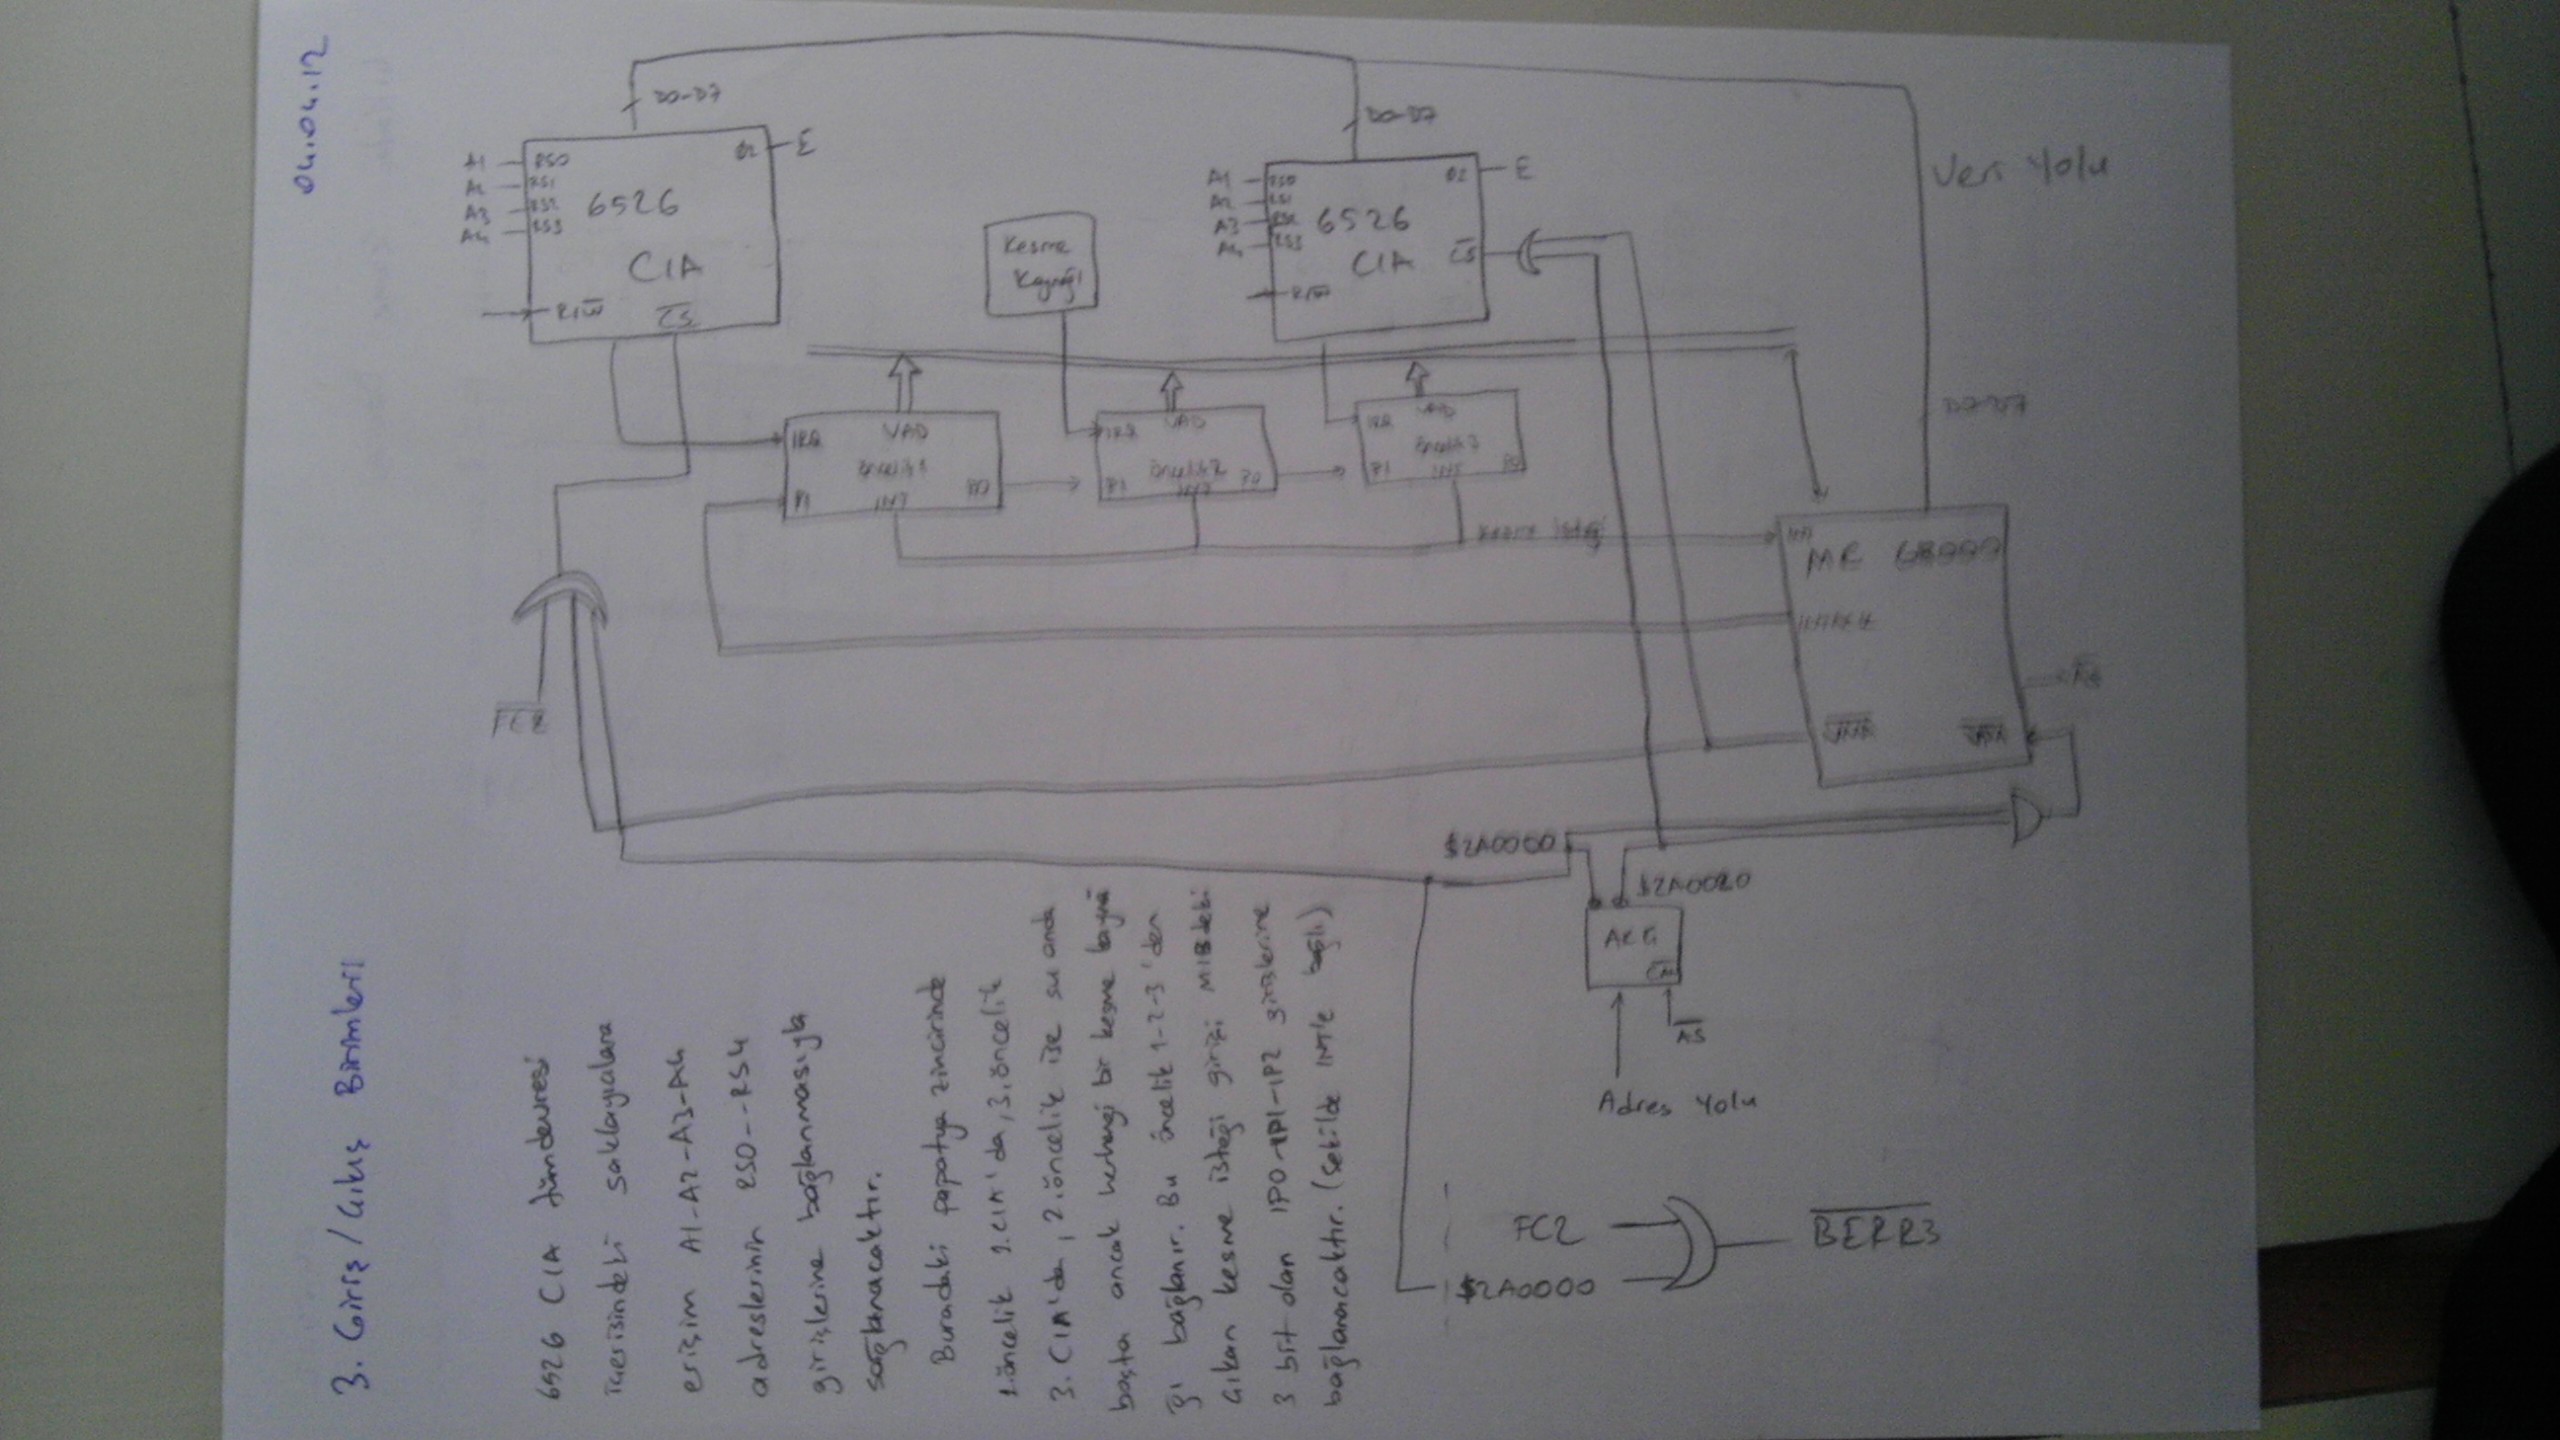 04.04.12
3. Giriş / Çıkış Birimleri
6526 CIA tümdevresi
içerisindeki saklayıcılara
erişim A1-A2-A3-A4
adreslerinin RS0--RS4
girişlerine bağlanmasıyla
sağlanacaktır.
Buradaki papatya zincirinde
1.öncelik 1.CIA'da, 3.öncelik
3. CIA'da, 2.öncelik ise şu anda
boşta ancak herhangi bir kesme kayna
ğı bağlanır. Bu öncelik 1-2-3'den
çıkan kesme isteği girişi MIBdeki
3 bit olan IP0-IP1-IP2 girişlerine
bağlanacaktır. (Şekilde INT'e bağlı)
D0-D7
A1
A2
A3
A4
RS0
RS1
RS2
RS3
Q2
E
6526
CIA
R/W
CS
Kesme
Kaynağı
D0-D7
A1
A2
A3
A4
RS0
RS1
RS2
RS3
Q2
E
6526
CIA
CS
R/W
Veri Yolu
IRQ
VAD
öncelik1
PI
INT
PO
IRQ
VAD
öncelik2
PI
INT
PO
IRQ
VAD
öncelik3
PI
INT
PO
Kesme isteği
D0-D7
INT
MC 68000
VMA
VPA
FC2
$2A0000
$2A0020
AKG
AS
Adres Yolu
FC2
$2A0000
BERR3